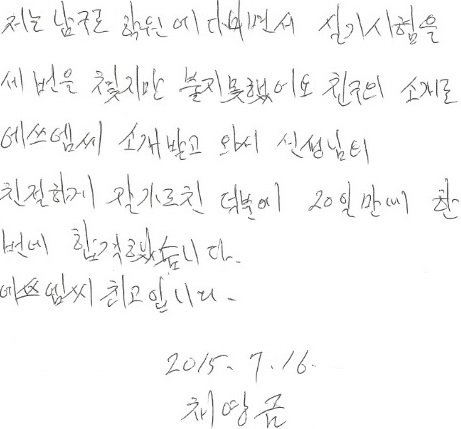 저는 남구로 학원에 다니면서 실기시험을
세 번을 쳤지만 붙지못했어요 친구의 소개로
에쓰엠씨 소개받고 와서 선생님의
친절하게 잘가르친 덕분에 20일만에 한
번에 합격했습니다.
에쓰엠씨 최고입니다.
2015. 7. 16.
채영금